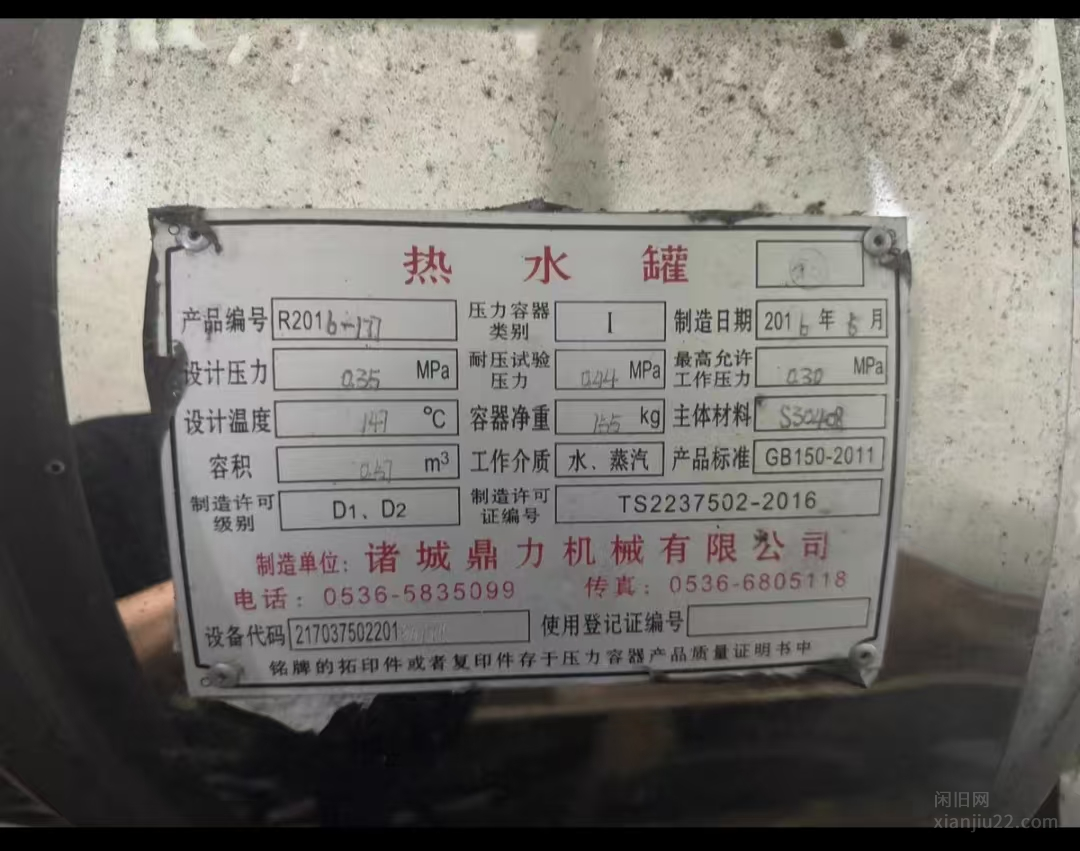 热水罐
产品编号 R2016-177 压力容器类别 I 制造日期 2016年5月
设计压力 0.35 MPa 耐压试验压力 0.44 MPa 最高允许工作压力 0.30 MPa
设计温度 147 ℃ 容器净重 155 kg 主体材料 S30408
容积 m³ 工作介质 水、蒸汽 产品标准 GB150-2011
制造许可级别 D1、D2 制造许可证编号 TS2237502-2016
制造单位：诸城鼎力机械有限公司
电话：0536-5835099 传真：0536-6805118
设备代码 217037502201 使用登记证编号
铭牌的拓印件或者复印件存于压力容器产品质量证明书中
闲旧网
xianjiu22.com